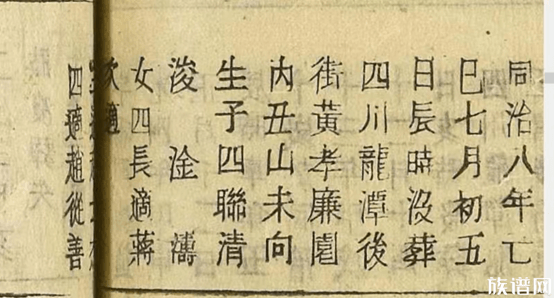 同治八年亡
巳七月初五
日辰時沒葬
四川龍潭後
街黃孝廉園
內丑山未向
生子四聯清
浚 淦 濤
女四長適蔣
次適
四適趙從善
族谱网